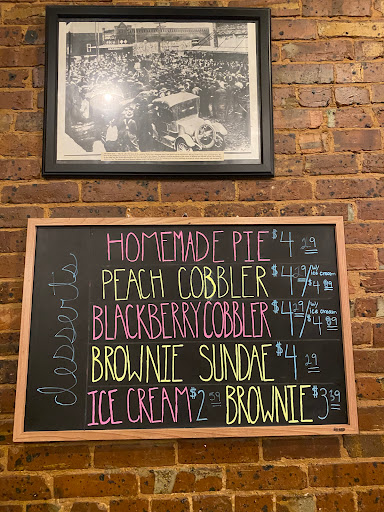 desserts
HOMEMADE PIE $4 29
PEACH COBBLER $4 29/w/ ice cream $4 89
BLACKBERRY COBBLER $4 29/w/ ice cream $4 89
BROWNIE SUNDAE $4 29
ICE CREAM $2 59 BROWNIE $3 39